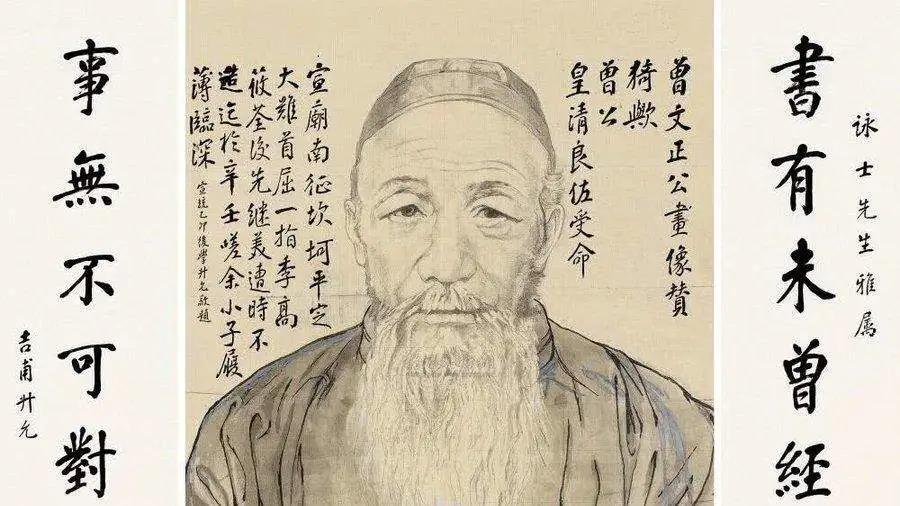 詠士先生雅属
書有未曾經
曾文正公畫像賛
猗歟
曾公
皇清良佐受命
宣廟南征坎坷平定
大難首屈一指李高
筱荃後先繼美遭時不
造迄於辛壬嗟余小子履
薄臨深
宣統乙卯後學升允敬題
事無不可對
吉甫升允